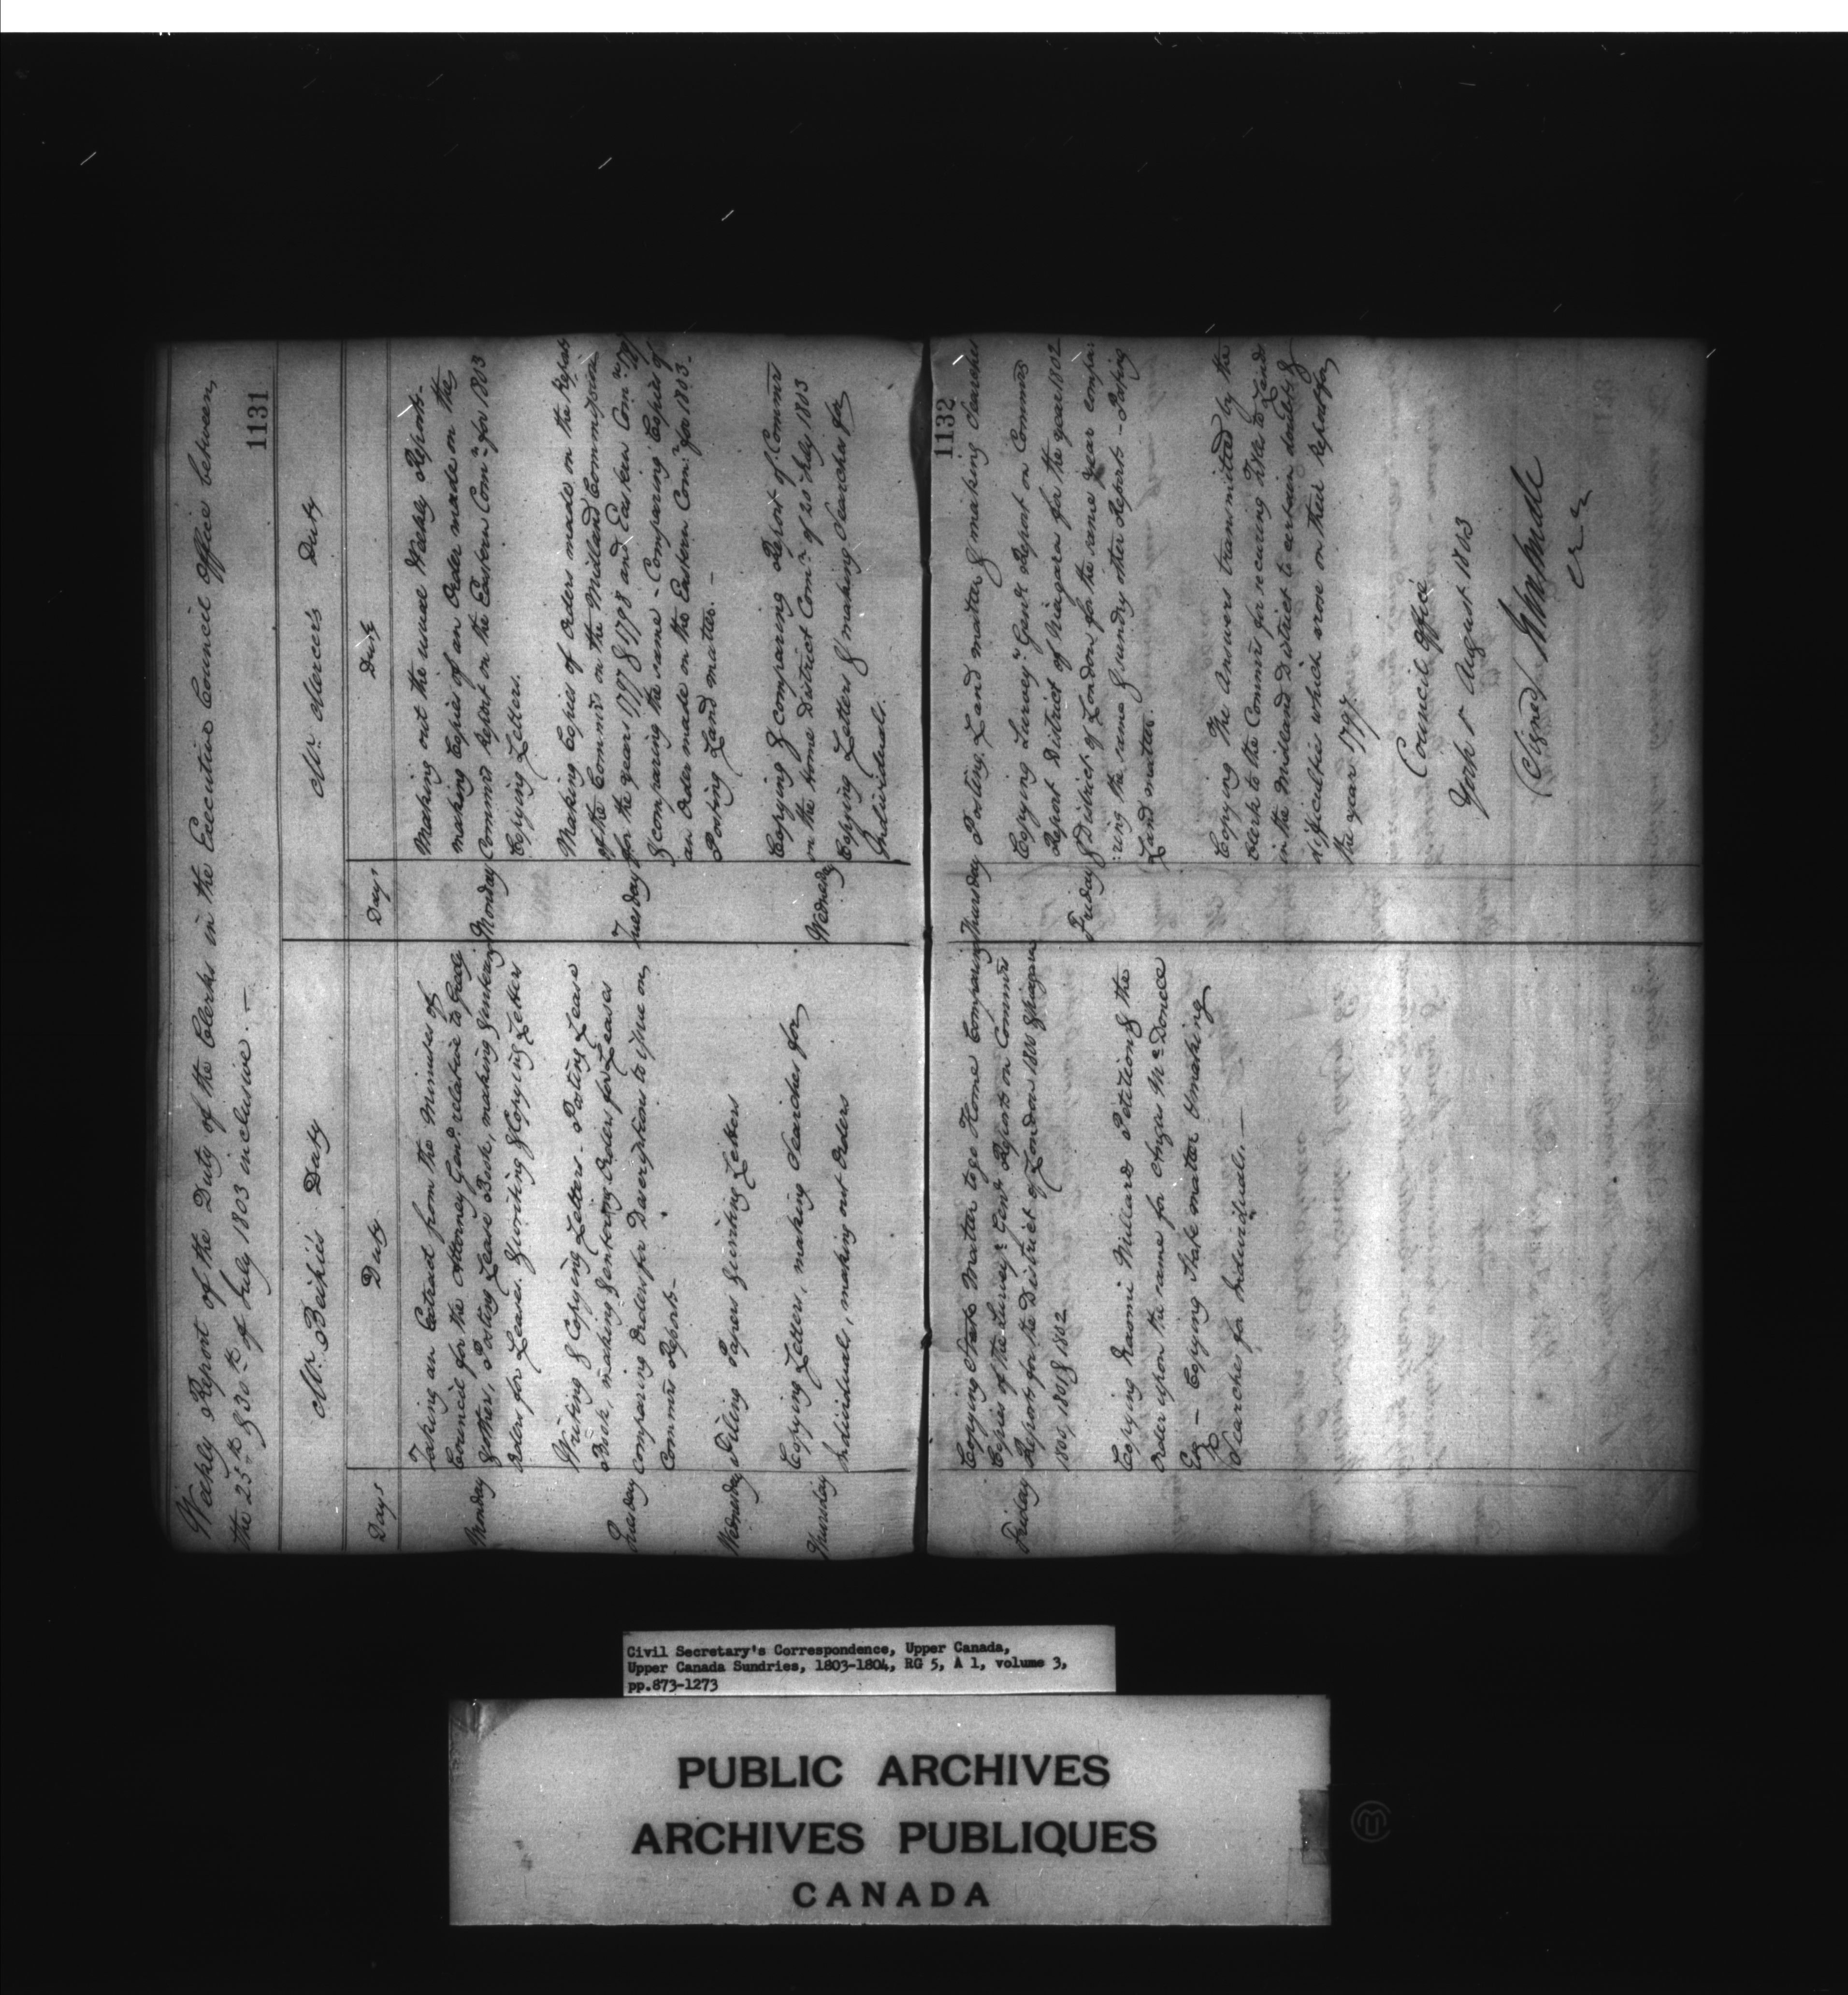 Weekly Report of the Duty of the Clerks in the Executive Council Office between
the 25th & 30th of July 1803 inclusive. —
1131
Mr. Beikie's Duty
Days
Duty
Monday
Taking an Extract from the Minutes of
Council for the Attorney Genl. relative to
Posting Lease Book, making & entering
Orders for Leases. & writing & Copying Letters
Tuesday
Writing & Copying Letters - Posting Lease
Book, making & entering Orders for Leases
Comparing Orders for Descriptions to issue on
Commrs Reports -
Wednesday
Filing Papers & writing Letters
Thursday
Copying Letters, making Searches for
Individuals, making out Orders
Mr. Mercer's Duty
Days
Duty
Monday
Making out the usual Weekly Reports -
making Copies of an Order made on the
Commrs Report on the Eastern Comn. for 1803
Copying Letters.
Tuesday
Making Copies of Orders made on the Reports
of the Commrs on the Midland Commission
for the years 1797 & 1798 and Eastern Comn. 1797
& comparing the same - Comparing Copies of
an Order made on the Eastern Comn. for 1803 -
Posting Land matter. -
Wednesday
Copying & comparing Report of Commrs
on the Home District Comn. of 20 July 1803
Copying Letters & making Searches for
Individuals.
1132
Friday
Copying State Matter to go Home Comparing
Copies of the Survey. Genls Reports on Commrs
Reports for the District of London 1800 & Niagara
1800, 1801 & 1802
Copying Naomi Millard Petition & the
Order upon the same for Angus McDonell
Esq — Copying State matter & making
Searches for Individuals. —
Thursday
Posting Land matter & making Searches
Friday
Copying Survey. Genls Report on Commrs
Report District of Niagara for the year 1802
& District of London for the same year compa-
:ring the same & sundry other Reports - Posting
Land matter.
Copying the Answers transmitted by the
Clerk to the Commrs for securing titles to Lands
in the Midland District to certain doubts &
difficulties which arose on their Report for
the year 1797. —
Council Office
York 1 August 1803
(Signed)
Civil Secretary's Correspondence, Upper Canada,
Upper Canada Sundries, 1803-1804, RG 5, A 1, volume 3,
pp.873-1273
PUBLIC ARCHIVES
ARCHIVES PUBLIQUES
CANADA